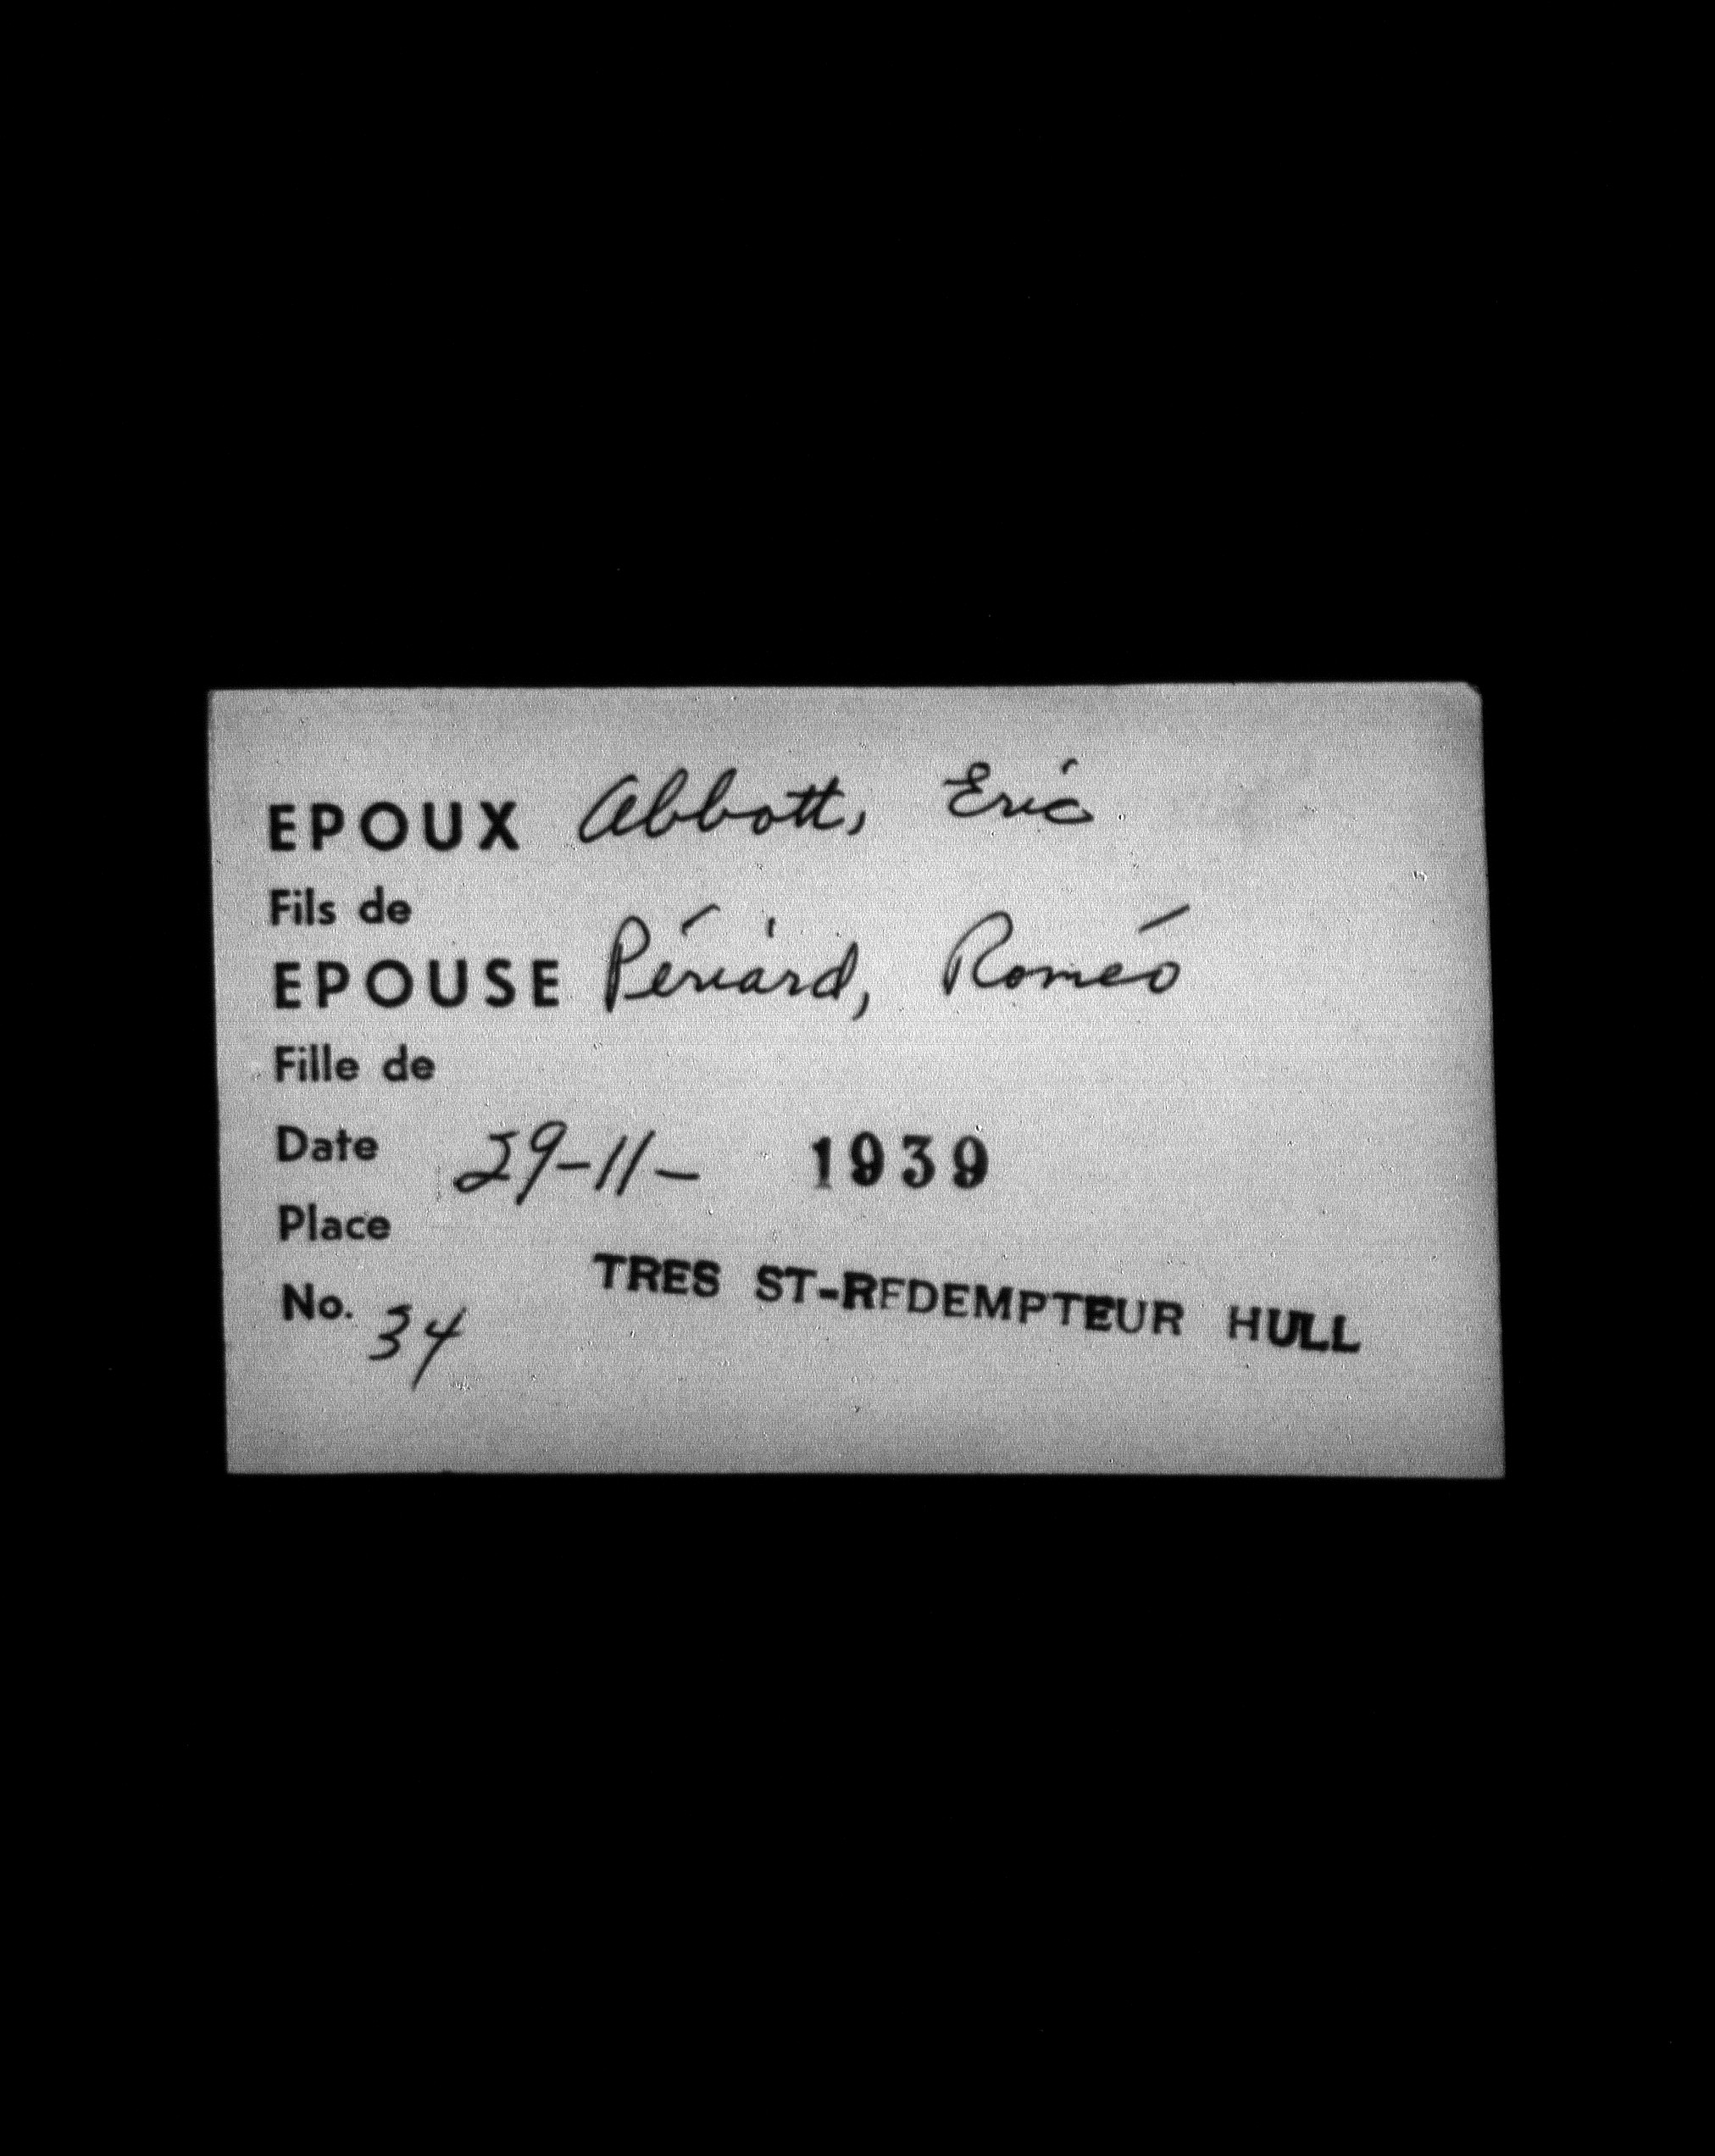 EPOUX Abbott, Eric
Fils de
EPOUSE Périard, Roméo
Fille de
Date 29-11- 1939
Place
TRES ST-REDEMPTEUR HULL
No. 34